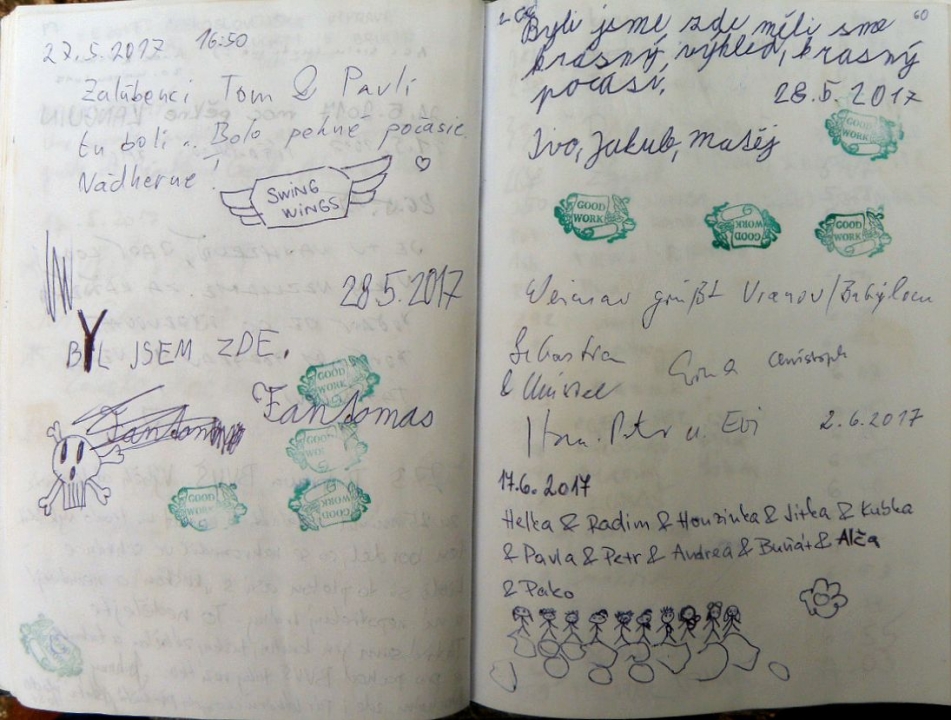 27.5.2017 16:50
Zalúbenci Tom & Pavlí
tu boli .. Bolo pekné počasie
Nádherne !
SWING
WINGS
28.5.2017
BYL JSEM ZDE.
Fantomas
Fantomas
GOOD
WORK
GOOD
WORK
GOOD
WORK
GOOD
WORK
60
Byli jsme zde měli sme
krásný výhled, krásný
počasí.
28.5.2017
Ivo, Jakub, Matěj
GOOD
WORK
GOOD
WORK
GOOD
WORK
GOOD
WORK
Weimar grüßt Vranov/Babylon
Sebastian
&
Christoph
Petr u. Evi 2.6.2017
17.6.2017
Helka & Radim & Honzinka & Jitka & Kubka
& Pavla & Petr & Andrea & Buňát & Alča
& Pako